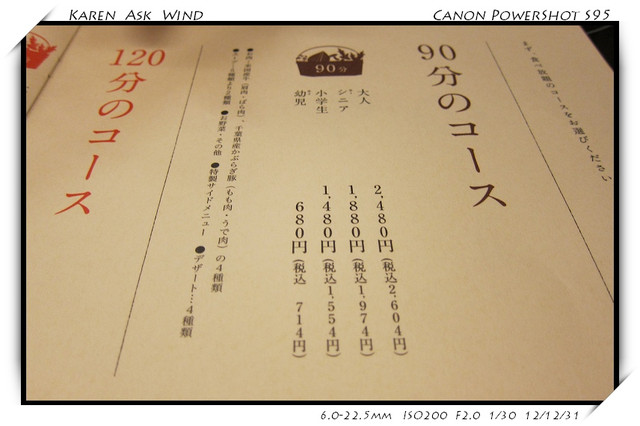 KAREN ASK WIND
CANON POWERSHOT S95
まず、食べ放題のコースをお選びください
90分のコース
90分
大人 2,480円(税込2,604円)
シニア 1,880円(税込1,974円)
小学生 1,480円(税込1,554円)
幼児 680円(税込 714円)
(もも肉・うで肉)の4種類
●お野菜・その他 ●特製サイドメニュー ●デザート…4種類
120分のコース
6.0-22.5MM ISO200 F2.0 1/30 12/12/31